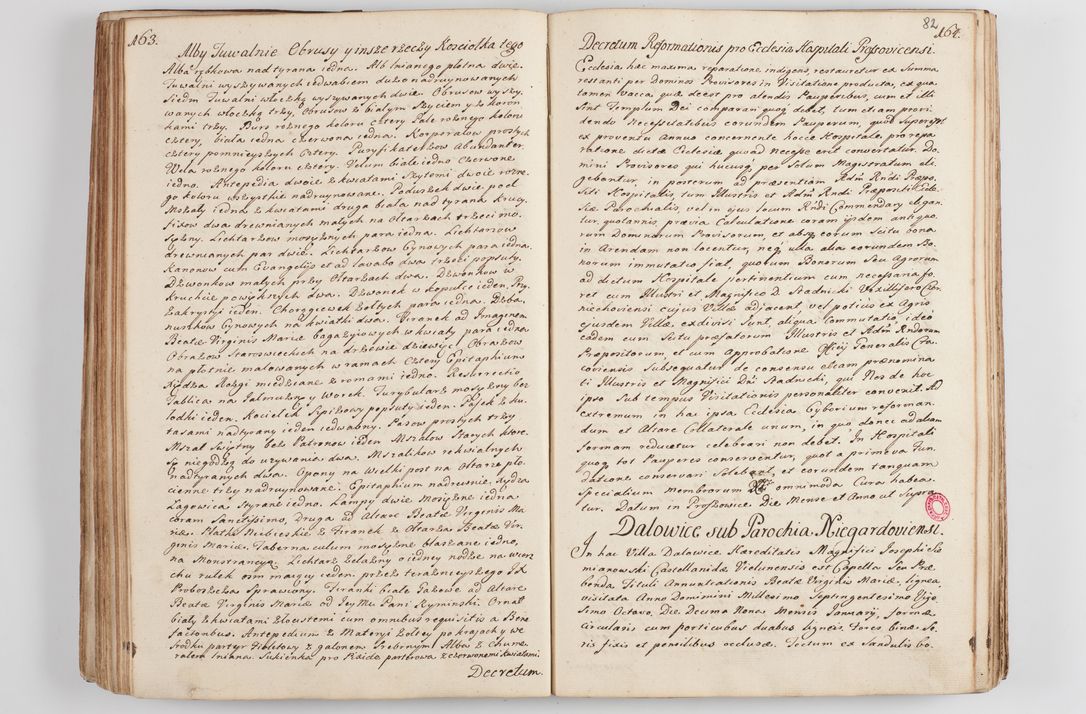 163.
Alby Tuwalnie Obrusy y insze rzeczy Kosciołka tego
Alba rąbkowa nad tyrana iedna. Alb lnianego płotna dwie.
Tuwalni wyszywanych iedwabiem dużo nadruynowanych
Siedm Tuwalni włoczką wyszywanych dwie. Obrusow wyszy.
wanych włoczką trzy, Obrusow z białym Szyciem y z koron
kami trzy. Burs rożnego koloru cztery Pale rożnego koloru
cztery, biała iedna czerwona iedna. Korporałow prostych
cztery pomnieyszych cztery. Puryfikaterzow abundanter
Wela rożnego koloru cztery. Velum białe iedno czerwone
iedno. Antepedia dwoie z kwiatami Szytemi dwoie rożne.
go koloru wszystkie nadruynowane. Poduszek dwie pod
Mszały iedna z kwiatami druga biała nad tyrana krucy.
fixow dwa drewnianych małych na Ołtarzach trzeci mo.
siężny. Lichtarzow mosyżnych para iedna. Lichtarzow
drewnianych par dwie. Lichtarzow Cynowych para iedna.
Kanonow cum Evangelijs et ad lavabo dwa trzeci popsuty.
Dzwonkow małych przy Ołtarzach dwa. Dzwonkow w
kruchcie powiększych dwa. Dzwonek w kopułce ieden, Przy
Zakrystyi ieden. Chorągiewek żołtych para iedna. Dzba.
nuszkow Cynowych na kwiatki dwa. Firanek ad Imaginem
Beatæ Virginis Mariæ bagazyiowych w kwiaty para iedna.
Obrazow Staroswieckich na drzewie dziewięć Obrazow
na płotnie malowanych w ramach cztery Epitaphium
Xiędza Rożgi miedziane z romami iedno. Resurrectio
Tablica na Jałmużny y Worek. Turybularz mosyżny bez
łodki ieden. Kociełek Spiżowy popsuty ieden. Pasek z ku.
tasami nadtyrany ieden iedwabny. Pasow prostych trzy
Mszał Swiętny bez Patronow ieden Mszałow Starych ktore
Są niegodzą do używania dwa. Mszalikow rekwialnych
nadtyranych dwa. Opony na Wielki post na Ołtarze pło.
cienne trzy nadruynowane. Epitaphium nadrewnie, Xiędza
Łagowica Styrane iedno. Lampy dwie Mosiężne iedna
coram Sanctissimo, Druga ad Altare Beatæ Virginis Ma.
riæ. Płatki Niebieskie z Firanek z Ołtarza Beatæ Vir.
ginis Mariæ. Tabernaculum mosyżne blaszane iedno,
na Monstrancyą. Lichtarz żelazny o iedney nodze na wierz
chu rulek osm maiący ieden. przez teraznieyszego JX
Proboszcza Sprawiony. Firanki białe Gazowe ad Altare
Beatæ Virginis Mariæ od JeyMci Pani Rymińskiy. Ornat
biały z kwiatami złocistemi cum omnibus requisitis a Bene
factoribus. Antepedium z Materyi żołtey pokraiach y we
Srodku partyr Fioletowy z galonem Srebrnym Alba z Chune
rałem lniana. Sukienka pro Pixide parterowa z czerwonemi kwiatami
Decretum.
82
164.
Decretum Reformationis pro Ecclesia Hospitali Prossovicensi.
Ecclesia hæc maxima reparatione indigens, restauretur ex Summa
restanti per Dominos Provisores in Visitatione producta, ex qua
tamen Vacca quæ deest pro alendis Pauperibus, cum et illi
Sint Templum Dei comparari quoq debet, tum etiam provi.
dendo Necessitatibus eorundem Pauperum, quod Superesset
ex proventu Annuo concernente hocce Hospitale, pro repa
ratione dictæ Ecclesiæ quoad necesse erit convertatur. Do.
mini Provisores qui hucusq per Solum Magistratum eli.
gebantur, in posterum ad præsentiam Adm Rndi Præpo.
siti Hospitalis tum Illustris et Adm Rndi Præpositi Eccle.
siæ Parochialis, vel in ejus locum Rndi Commendarij eligan.
tur, quotannis, prævia Calculatione coram ijsdem antiquo.
rum Dominorum Provisorum, et absq eorum Scitu bona
in Arendam non locentur, neq ulla alia eorundem Bo.
norum immutatio fiat, quorum Bonorum Seu Agrorum
ad dictum Hospitale pertinentium cum necessaria fo.
ret cum Illustri et Magnifico D. Stadnicki Vexillifero Cor
niechoviensi cujus Villæ adjacent vel potius ex Agris
ejusdem Villæ, exdivisi Sunt, aliqua Commutatio ideo
eadem cum Scitu præfatorum Illustris et Adm Rndorum
Præpositorum, et cum Approbatione Officij Generalis Cra.
coviensis Subsequatur de consensu etiam prænomina
ti Illustris et Magnifici Dni Stadnicki, qui Nos de hoc
ipso Sub tempus Visitationis personaliter convenit. Ad
extremum in hac ipsa Ecclesia Cyborium reforman.
dum et Altare Collaterale unum, in quo donec ad aliam
formam reducetur celebrari non debet. In Hospitali
quoq tot Pauperes conserventur, quot a primæva Fun.
datione conservari Solebant, et eorundem tanquam
Specialium membrorum omnimoda Cura habea.
tur. Datum in Proszowice Die Mense et Anno ut Supra
Dalowice sub Parochia Niegardoviensi.
In hac Villa Dalowice Hæreditatis Magnifici Josephi Ko
mianowski Castellanidæ Vielunensis est Capella Seu Præ.
benda Tituli Annuntiationis Beatæ Virginis Mariæ, lignea,
visitata Anno Dominimi Millesimo Septingentesimo Vige
simo Octavo, Die Decima Nona Mensis Januarij, formæ
Circularis cum porticubus duabus ligneis Fores binæ Se.
ris fixis et pensilibus occlusæ. Tectum ex Sandulis bo.